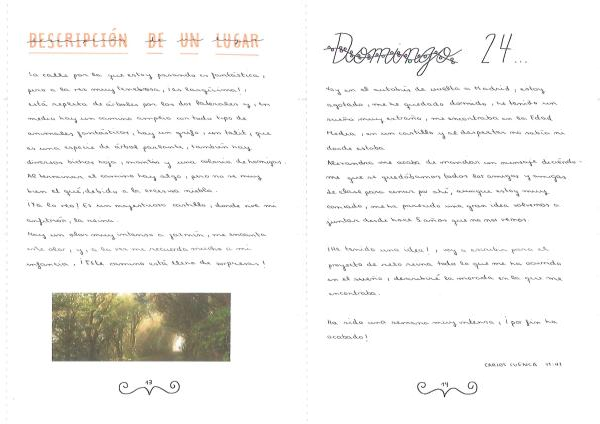 DESCRIPCIÓN DE UN LUGAR
La calle por la que estoy pasando es fantástica,
pero a la vez muy tenebrosa, ¡es larguísima!,
está repleta de árboles por los dos laterales y, en
medio hay un camino amplio con todo tipo de
animales fantásticos, hay un grifo, un
es una especie de árbol parlante, también hay
diversos bichos rojos, mantis y una colonia de hormigas.
Al terminar el camino hay algo, pero no se muy
bien el qué, debido a la excesiva niebla.
¡Ya lo veo! Es un majestuoso castillo, donde vive mi
anfitrión, la reina.
Hay un olor muy intenso a jazmín, me encanta
este olor, y, a la vez me recuerda mucho a mi
infancia, ¡Este camino está lleno de sorpresas!
13
Domingo 24...
Voy en el autobús de vuelta a Madrid, estoy
agotado, me he quedado dormido, he tenido un
sueño muy extraño, me encontraba en la Edad
Media, en un castillo y al despertar no sabía ni
donde estaba.
Alexandra me acaba de mandar un mensaje diciéndo-
me que se quedábamos todos los amigos y amigas
de clase para cenar por ahí, aunque estoy muy
cansado, me ha parecido una gran idea volvernos a
juntar desde hace 5 años que no nos vemos.
¡He tenido una idea!, voy a escribir para el
proyecto de reto reina todo lo que me ha ocurrido
en el sueño, describiré la morada en la que me
encontraba.
Ha sido una semana muy intensa, ¡por fin ha
acabado!
CARLOS CUENCA
14